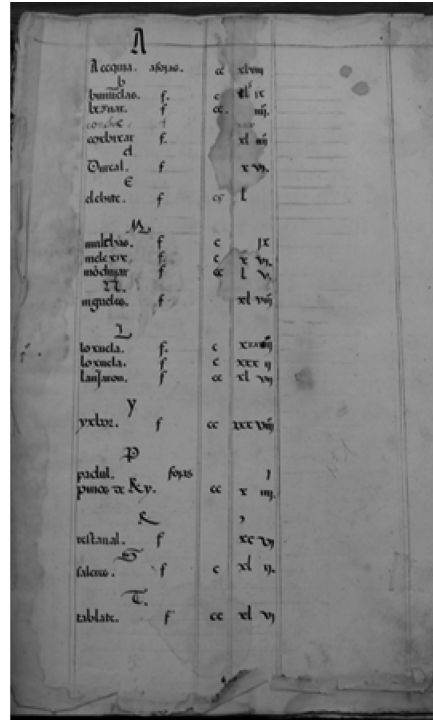 A
Acequia. afojas. cc xlviij
b
buñuelas. f. c xl ix
beznar. f cc. iiij.
conchar f
cozbixar f. xl iiij
d
Durcal. f x vij.
E
elchite. f cc l
M
mulchas. f c jx
melexix. f c x vj.
mõdujar f cc l v.
N
niguelas. f xl viij
L
loxuela. f. c
loxuela. f c xxx ij
lanjaron. f cc xl vij
y
yxbor. f cc xxx viij
P
padul. fojas j
pinos de R. v. cc x iiij.
R
restanal. f xc vij
S
saleres. f c xl ij.
T.
tablate. f cc xl vj